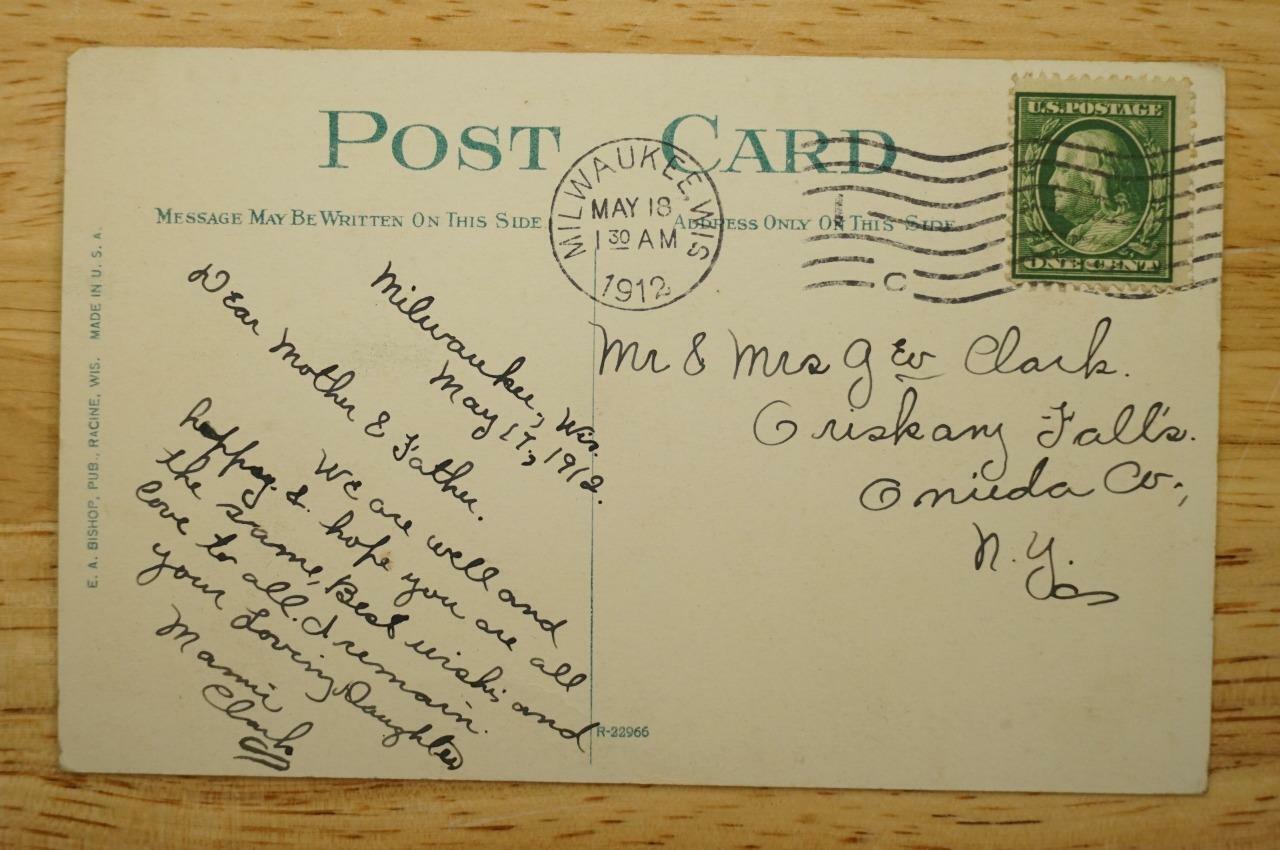 POST CARD
MESSAGE MAY BE WRITTEN ON THIS SIDE
ADDRESS ONLY ON THIS SIDE
MILWAUKEE, WIS
MAY 18
1 30 AM
1912
U.S. POSTAGE
ONE CENT
C
E. A. BISHOP, PUB., RACINE, WIS. MADE IN U. S. A.
Milwaukee, Wis.
May 17, 1912.
Dear Mother & Father.
We are well and
happy. & hope you are all
the same, Best wishis and
love to all. I remain.
your Loving Daughter
Mamie
Clark
Mr & Mrs G Ew Clark.
Oriskany Fall's.
Onieda Co.,
N.Y.
R-22966